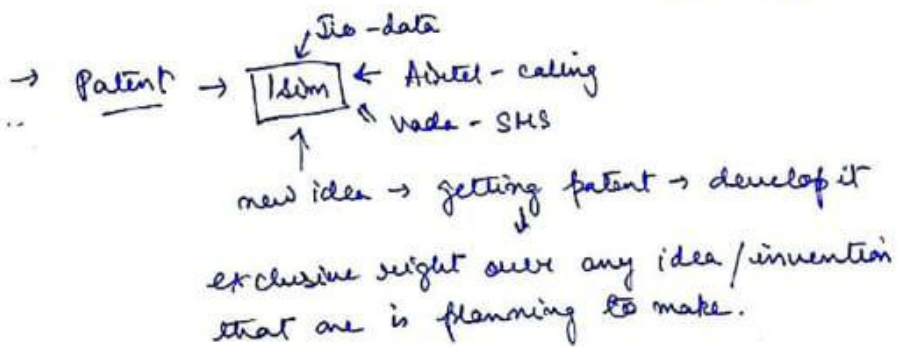 Jio - data
→ Patent → 1 sim ← Airtel - calling
.. Voda - SMS
new idea → getting patent → develop it
exclusive right over any idea / invention
that one is planning to make.